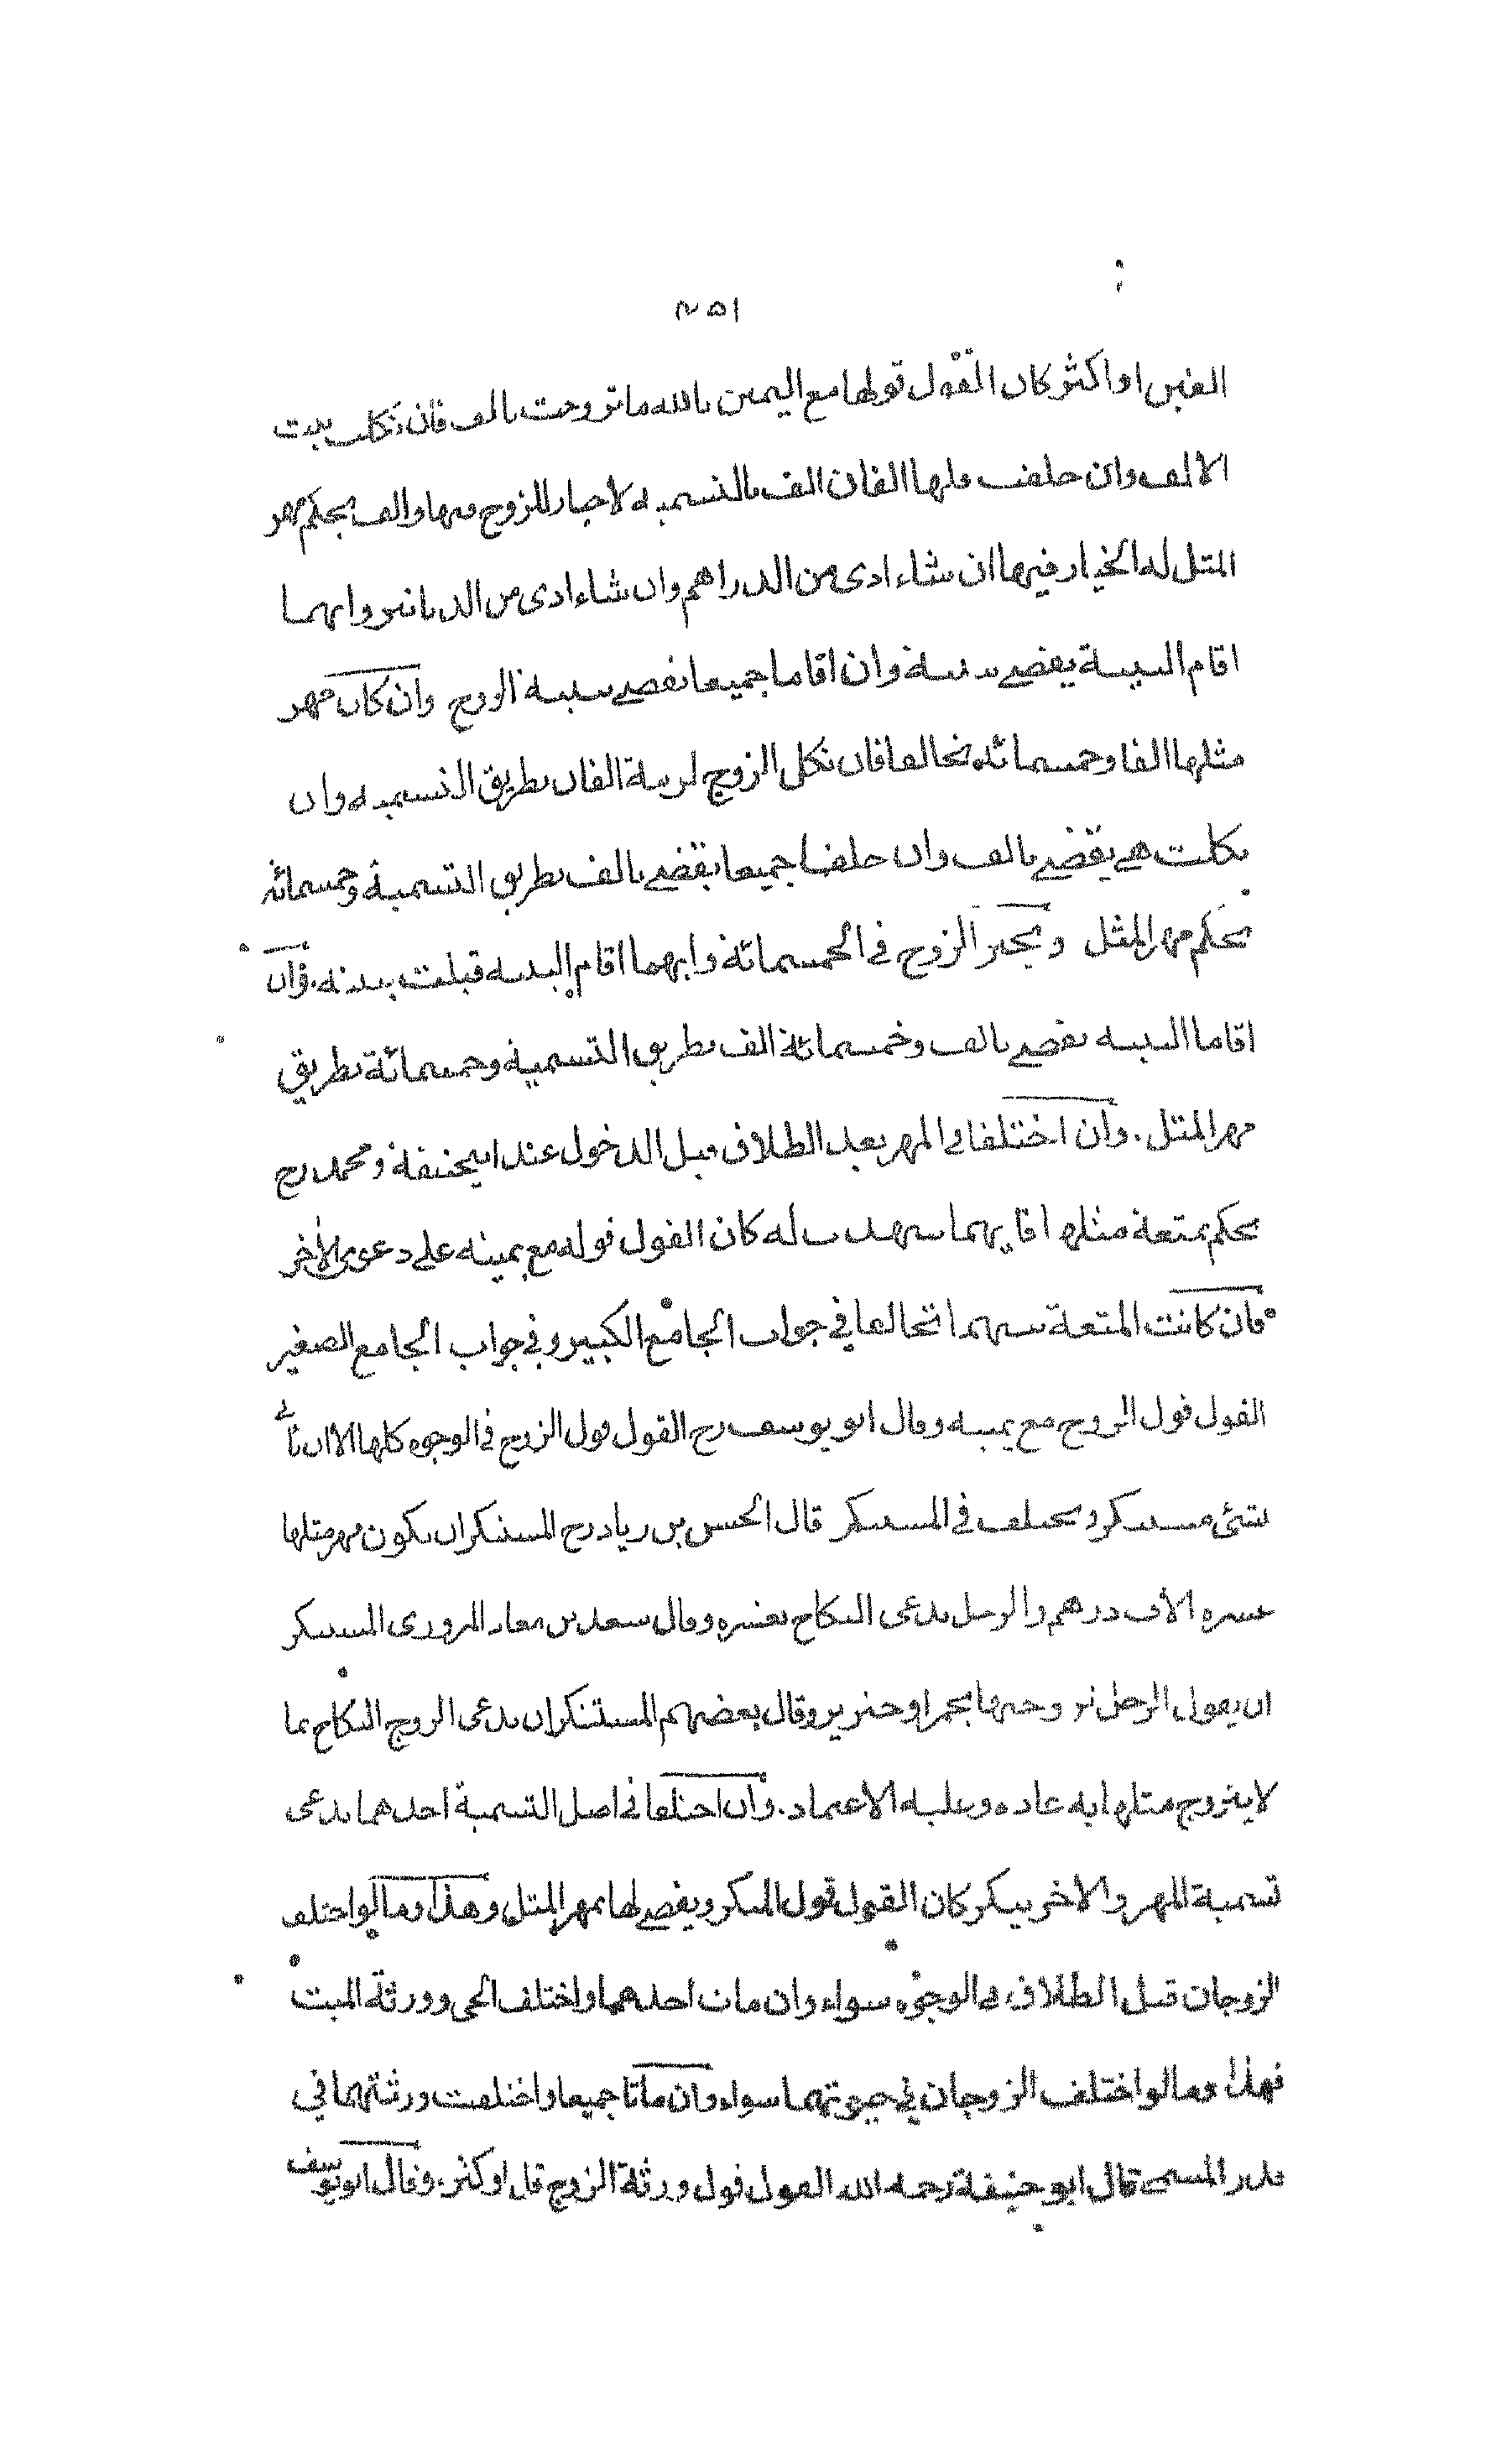 ٣٥١
الفين او اكثر كان القول قولها مع اليمين بالله ما تزوجت بالف فان نكلت يثبت
الالف وان حلفت فلها الفان الف بالتسمية لا خيار للزوج فيها والف بحكم مهر
المثل له الخيار فيها ان شاء ادى من الدراهم وان شاء ادى من الدنانير وايهما
اقام البينة يقضى ببينته وان اقاما جميعا يقضى ببينة الزوج وان كان مهر
مثلها الفا وخمسمائة تحالفا فان نكل الزوج لزمه الفان بطريق التسمية وان
نكلت هي يقضى بالف وان حلفا جميعا يقضى بالف بطريق التسمية وخمسمائة
بحكم مهر المثل ويخير الزوج في الخمسمائة وايهما اقام البينة قبلت بينته. وان
اقاما البينة يقضى بالف وخمسمائة الف بطريق التسمية وخمسمائة بطريق
مهر المثل. وان اختلفا في المهر بعد الطلاق قبل الدخول عند ابيحنيفة ومحمد رح
يحكم بمتعة مثلها فايهما شهدت له كان القول قوله مع يمينه على دعوى الآخر
فان كانت المتعة بينهما تحالفا في جواب الجامع الكبير وفي جواب الجامع الصغير
القول قول الزوج مع يمينه وقال ابو يوسف رح القول قول الزوج في الوجوه كلها الا ان ياتي
بشئ مستنكر ويختلف في المستنكر قال الحسن بن زياد رح المستنكر ان يكون مهر مثلها
عشرة الاف درهم والرجل يدعى النكاح بعشرة وقال سعد بن معاذ المروزى المستنكر
ان يقول الرجل تزوجتها بخمر او خنزير وقال بعضهم المستنكر ان يدعى الزوج النكاح بما
لا يتزوج مثلها به عادة وعليه الاعتماد. وان اختلفا في اصل التسمية احدهما يدعى
تسمية المهر والاخر ينكر كان القول قول المنكر ويقضى لها بمهر المثل وهذا وما لو اختلف
الزوجان قبل الطلاق في الوجوه سواء وان مات احدهما واختلف الحى وورثة الميت
فهذا وما لو اختلف الزوجان في حيوتهما سواء وان ماتا جميعا واختلفت ورثتهما في
قدر المسمى قال ابو حنيفة رحمه الله القول قول ورثة الزوج قل او كثر. وقال ابو يوسف